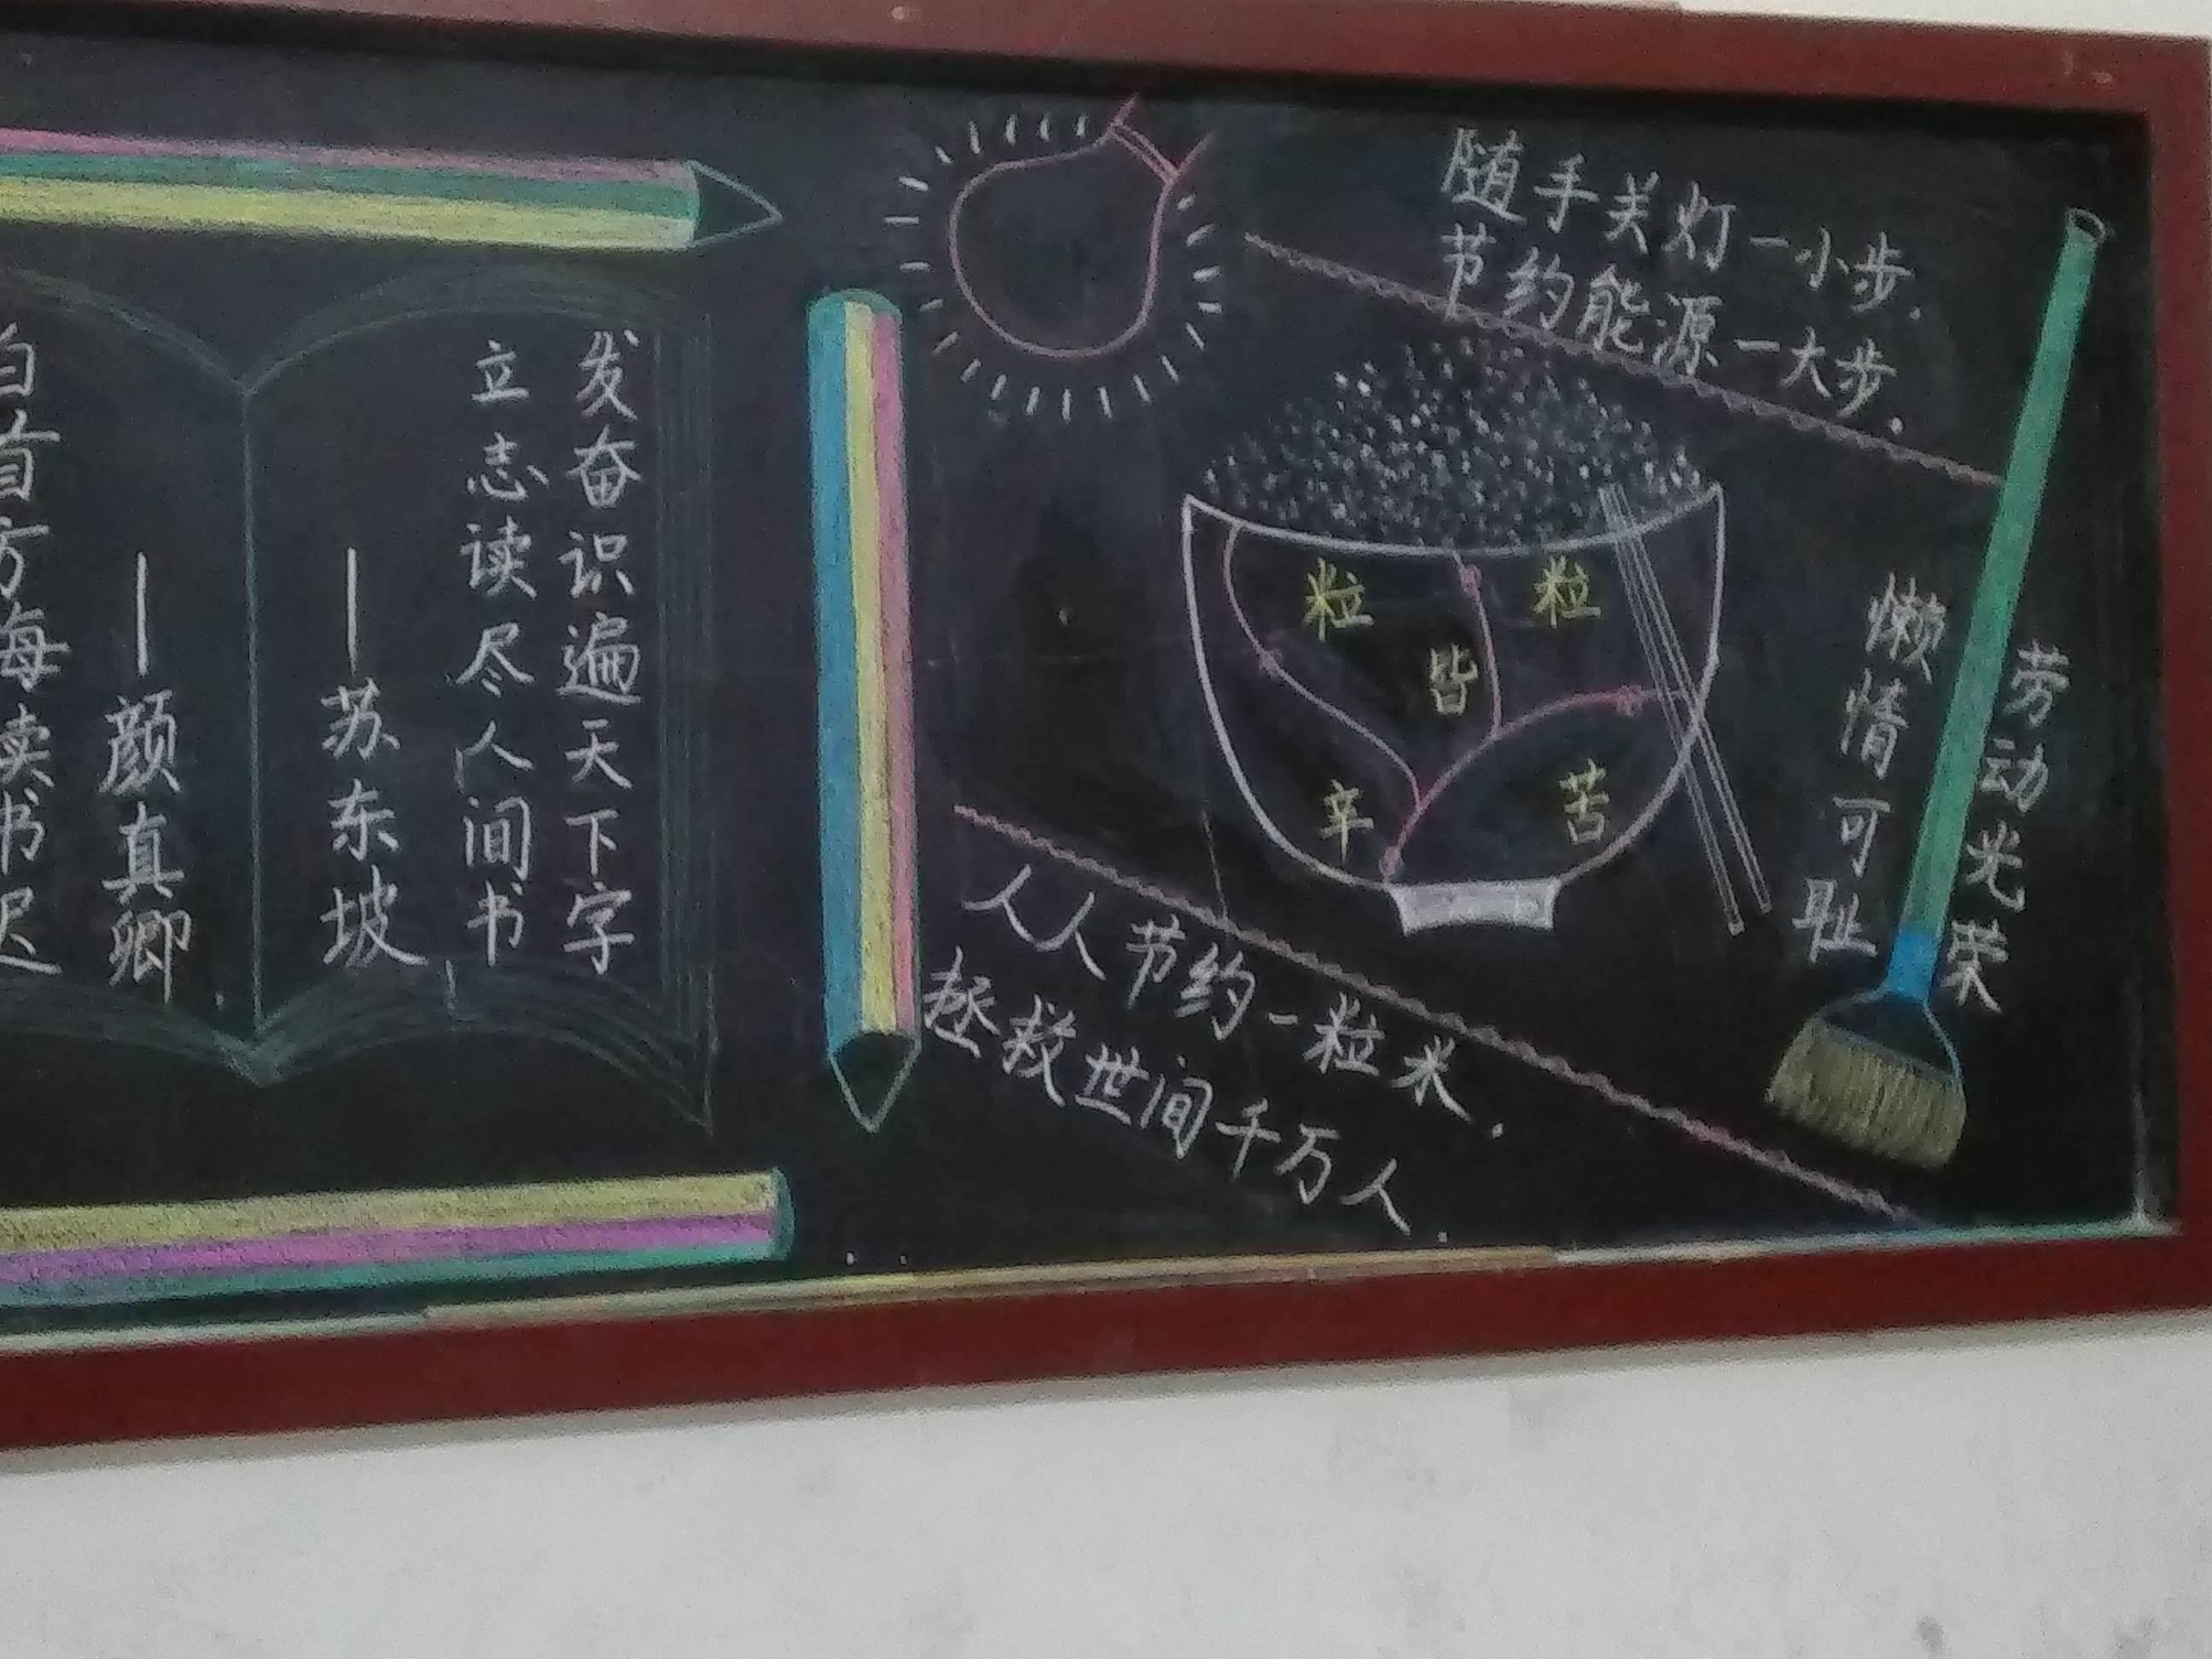 发奋识遍天下字
立志读尽人间书
—苏东坡
—颜真卿
白首方悔读书迟
随手关灯一小步.
节约能源一大步.
粒粒
皆
辛苦
劳动光荣
懒情可耻
人人节约一粒米.
拯救世间千万人.